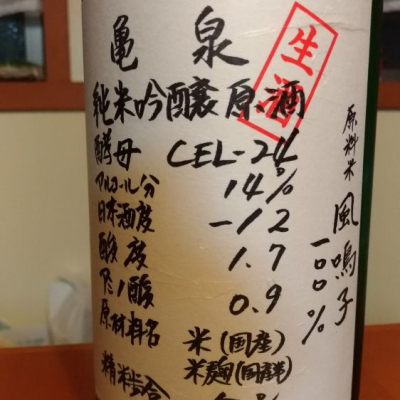 亀泉
生酒
純米吟醸原酒
酵母 CEL-24
アルコール分 14%
日本酒度 -12
酸度 1.7
アミノ酸 0.9
原材料名 米(国産)
米麹(国産米)
精米歩合
原料米 風鳴子 100%